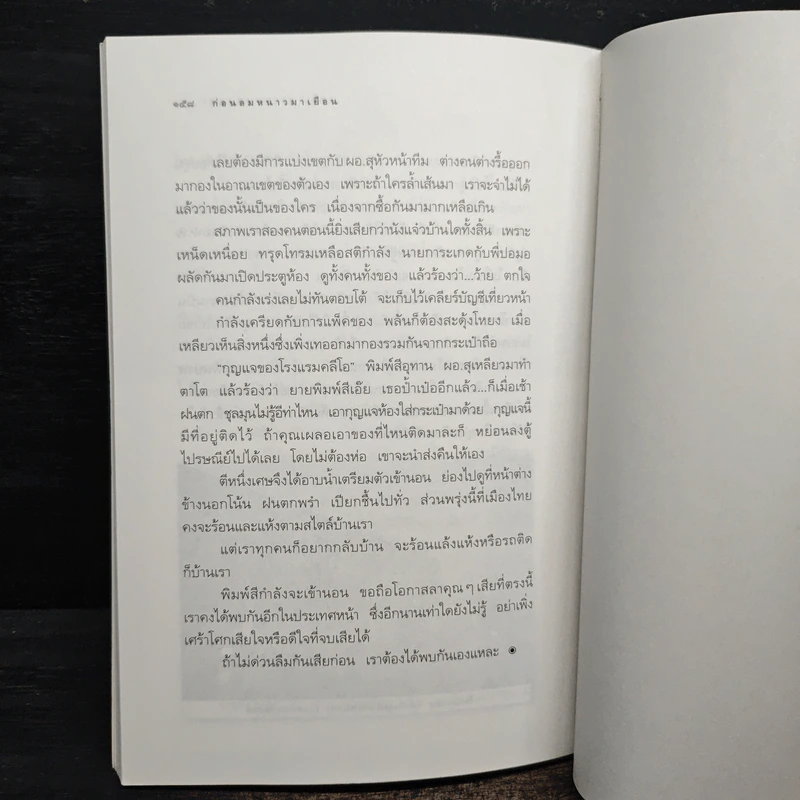 ๑๕๘ ก่อนลมหนาวมาเยือน
เลยต้องมีการแบ่งเขตกับ ผอ.สุหัวหน้าทีม ต่างคนต่างรื้อออก
มากองในอาณาเขตของตัวเอง เพราะถ้าใครล้ำเส้นมา เราจะจำไม่ได้
แล้วว่าของนั้นเป็นของใคร เนื่องจากซื้อกันมามากเหลือเกิน
สภาพเราสองคนตอนนี้ยิ่งเสียกว่านังแจ๋วบ้านใดทั้งสิ้น เพราะ
เหน็ดเหนื่อย ทรุดโทรมเหลือสติกำลัง นายการะเกดกับพี่ปอมอ
ผลัดกันมาเปิดประตูห้อง ดูทั้งคนทั้งของ แล้วร้องว่า...ว้าย ตกใจ
คนกำลังเร่งเลยไม่ทันตอบโต้ จะเก็บไว้เคลียร์บัญชีเที่ยวหน้า
กำลังเครียดกับการแพ็คของ พลันก็ต้องสะดุ้งโหยง เมื่อ
เหลียวเห็นสิ่งหนึ่งซึ่งเพิ่งเทออกมากองรวมกันจากกระเป๋าถือ
“กุญแจของโรงแรมคลีโอ” พิมพ์สีอุทาน ผอ.สุเหลียวมาทำ
ตาโต แล้วร้องว่า ยายพิมพ์สีเอ๊ย เธอป้ำเป๋ออีกแล้ว...ก็เมื่อเช้า
ฝนตก ชุลมุนไม่รู้อีท่าไหน เอากุญแจห้องใส่กระเป๋ามาด้วย กุญแจนี้
มีที่อยู่ติดไว้ ถ้าคุณเผลอเอาของที่ไหนติดมาละก็ หย่อนลงตู้
ไปรษณีย์ไปได้เลย โดยไม่ต้องห่อ เขาจะนำส่งคืนให้เอง
ตีหนึ่งเศษจึงได้อาบน้ำเตรียมตัวเข้านอน ย่องไปดูที่หน้าต่าง
ข้างนอกโน้น ฝนตกพรำ เปียกชื้นไปทั่ว ส่วนพรุ่งนี้ที่เมืองไทย
คงจะร้อนและแห้งตามสไตล์บ้านเรา
แต่เราทุกคนก็อยากกลับบ้าน จะร้อนแล้งแห้งหรือรถติด
ก็บ้านเรา
พิมพ์สีกำลังจะเข้านอน ขอถือโอกาสลาคุณๆ เสียที่ตรงนี้
เราคงได้พบกันอีกในประเทศหน้า ซึ่งอีกนานเท่าใดยังไม่รู้ อย่าเพิ่ง
เศร้าโศกเสียใจหรือดีใจที่จบเสียได้
ถ้าไม่ด่วนลืมกันเสียก่อน เราต้องได้พบกันเองแหละ ◉